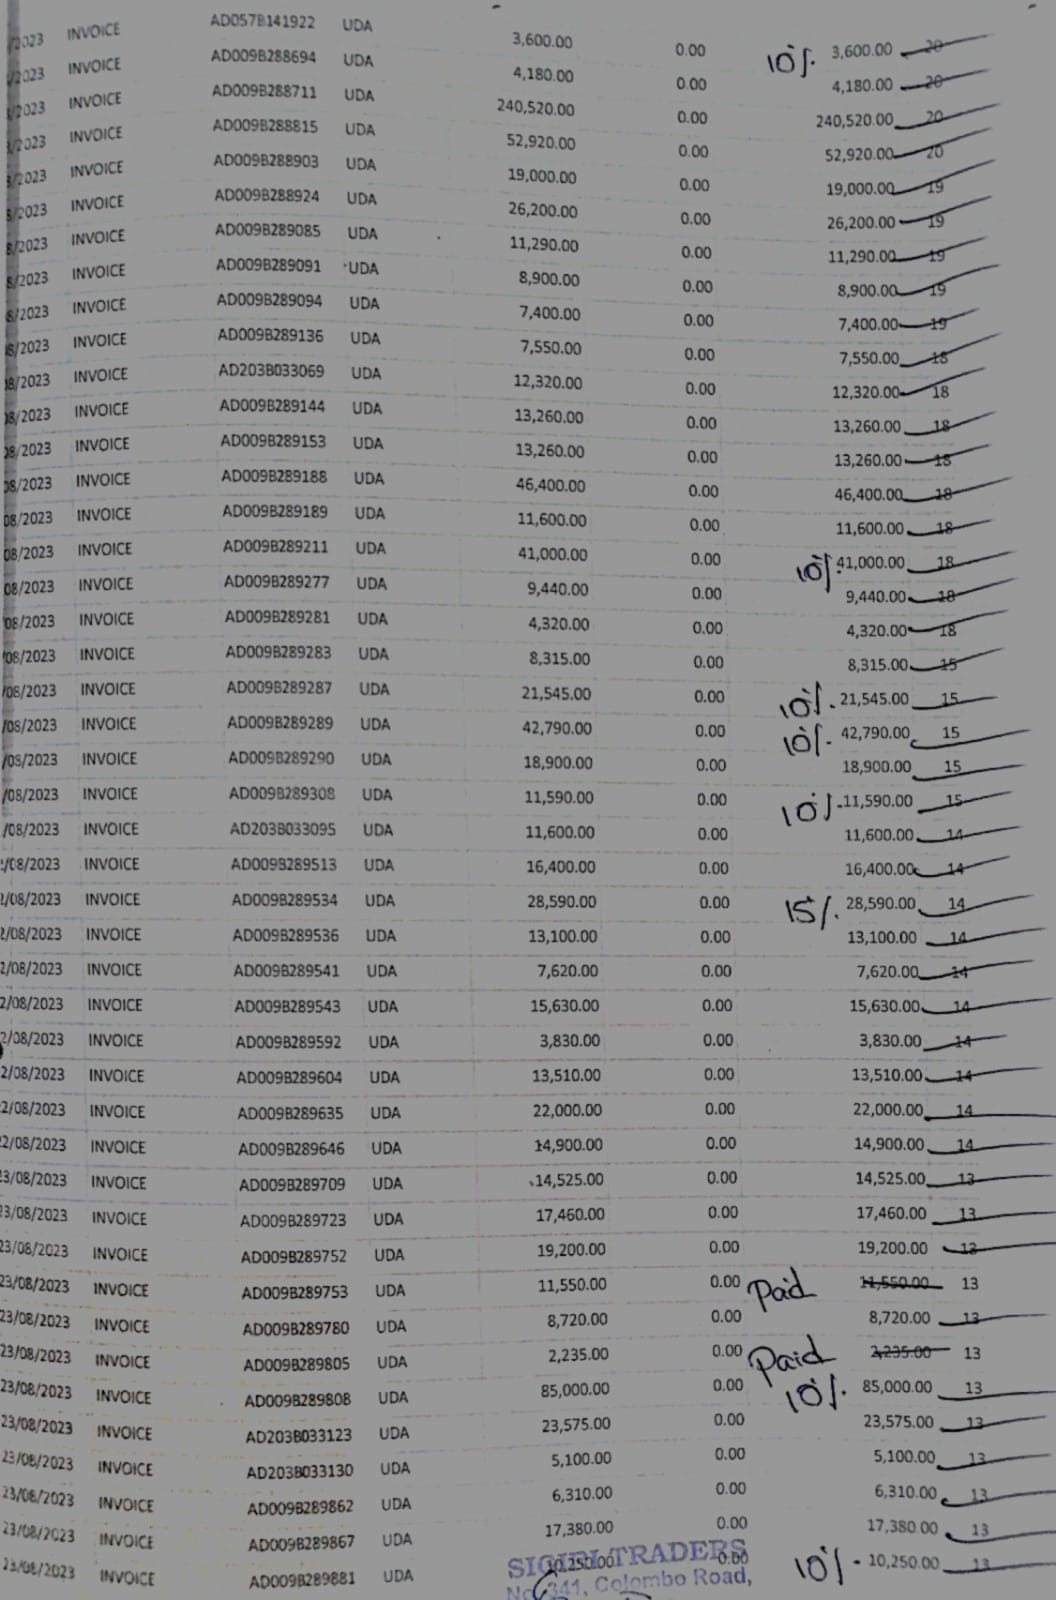 /2023 INVOICE AD057B141922 UDA 3,600.00 0.00 10% 3,600.00 20
/2023 INVOICE AD009B288694 UDA 4,180.00 0.00 4,180.00 20
/2023 INVOICE AD009B288711 UDA 240,520.00 0.00 240,520.00 20
/2023 INVOICE AD009B288815 UDA 52,920.00 0.00 52,920.00 20
8/2023 INVOICE AD009B288903 UDA 19,000.00 0.00 19,000.00 19
8/2023 INVOICE AD009B288924 UDA 26,200.00 0.00 26,200.00 19
8/2023 INVOICE AD009B289085 UDA 11,290.00 0.00 11,290.00 19
8/2023 INVOICE AD009B289091 UDA 8,900.00 0.00 8,900.00 19
8/2023 INVOICE AD009B289094 UDA 7,400.00 0.00 7,400.00 19
08/2023 INVOICE AD009B289136 UDA 7,550.00 0.00 7,550.00 18
08/2023 INVOICE AD203B033069 UDA 12,320.00 0.00 12,320.00 18
08/2023 INVOICE AD009B289144 UDA 13,260.00 0.00 13,260.00 18
08/2023 INVOICE AD009B289153 UDA 13,260.00 0.00 13,260.00 18
08/2023 INVOICE AD009B289188 UDA 46,400.00 0.00 46,400.00 18
08/2023 INVOICE AD009B289189 UDA 11,600.00 0.00 11,600.00 18
08/2023 INVOICE AD009B289211 UDA 41,000.00 0.00 10% 41,000.00 18
08/2023 INVOICE AD009B289277 UDA 9,440.00 0.00 9,440.00 18
/08/2023 INVOICE AD009B289281 UDA 4,320.00 0.00 4,320.00 18
/08/2023 INVOICE AD009B289283 UDA 8,315.00 0.00 8,315.00 15
/08/2023 INVOICE AD009B289287 UDA 21,545.00 0.00 10% 21,545.00 15
/08/2023 INVOICE AD009B289289 UDA 42,790.00 0.00 10% 42,790.00 15
/08/2023 INVOICE AD009B289290 UDA 18,900.00 0.00 18,900.00 15
/08/2023 INVOICE AD009B289308 UDA 11,590.00 0.00 10% 11,590.00 15
/08/2023 INVOICE AD203B033095 UDA 11,600.00 0.00 11,600.00 14
/08/2023 INVOICE AD009B289513 UDA 16,400.00 0.00 16,400.00 14
2/08/2023 INVOICE AD009B289534 UDA 28,590.00 0.00 15% 28,590.00 14
2/08/2023 INVOICE AD009B289536 UDA 13,100.00 0.00 13,100.00 14
2/08/2023 INVOICE AD009B289541 UDA 7,620.00 0.00 7,620.00 14
2/08/2023 INVOICE AD009B289543 UDA 15,630.00 0.00 15,630.00 14
2/08/2023 INVOICE AD009B289592 UDA 3,830.00 0.00 3,830.00 14
2/08/2023 INVOICE AD009B289604 UDA 13,510.00 0.00 13,510.00 14
22/08/2023 INVOICE AD009B289635 UDA 22,000.00 0.00 22,000.00 14
22/08/2023 INVOICE AD009B289646 UDA 14,900.00 0.00 14,900.00 14
23/08/2023 INVOICE AD009B289709 UDA 14,525.00 0.00 14,525.00 13
23/08/2023 INVOICE AD009B289723 UDA 17,460.00 0.00 17,460.00 13
23/08/2023 INVOICE AD009B289752 UDA 19,200.00 0.00 19,200.00 13
23/08/2023 INVOICE AD009B289753 UDA 11,550.00 0.00 Paid 11,550.00 13
23/08/2023 INVOICE AD009B289780 UDA 8,720.00 0.00 8,720.00 13
23/08/2023 INVOICE AD009B289805 UDA 2,235.00 0.00 Paid 2,235.00 13
23/08/2023 INVOICE AD009B289808 UDA 85,000.00 0.00 10% 85,000.00 13
23/08/2023 INVOICE AD203B033123 UDA 23,575.00 0.00 23,575.00 13
23/08/2023 INVOICE AD203B033130 UDA 5,100.00 0.00 5,100.00 13
23/08/2023 INVOICE AD009B289862 UDA 6,310.00 0.00 6,310.00 13
23/08/2023 INVOICE AD009B289867 UDA 17,380.00 0.00 17,380.00 13
23/08/2023 INVOICE AD009B289881 UDA 10,250.00 0.00 10% 10,250.00 13
SIGIRI TRADERS
No. 341, Colombo Road,